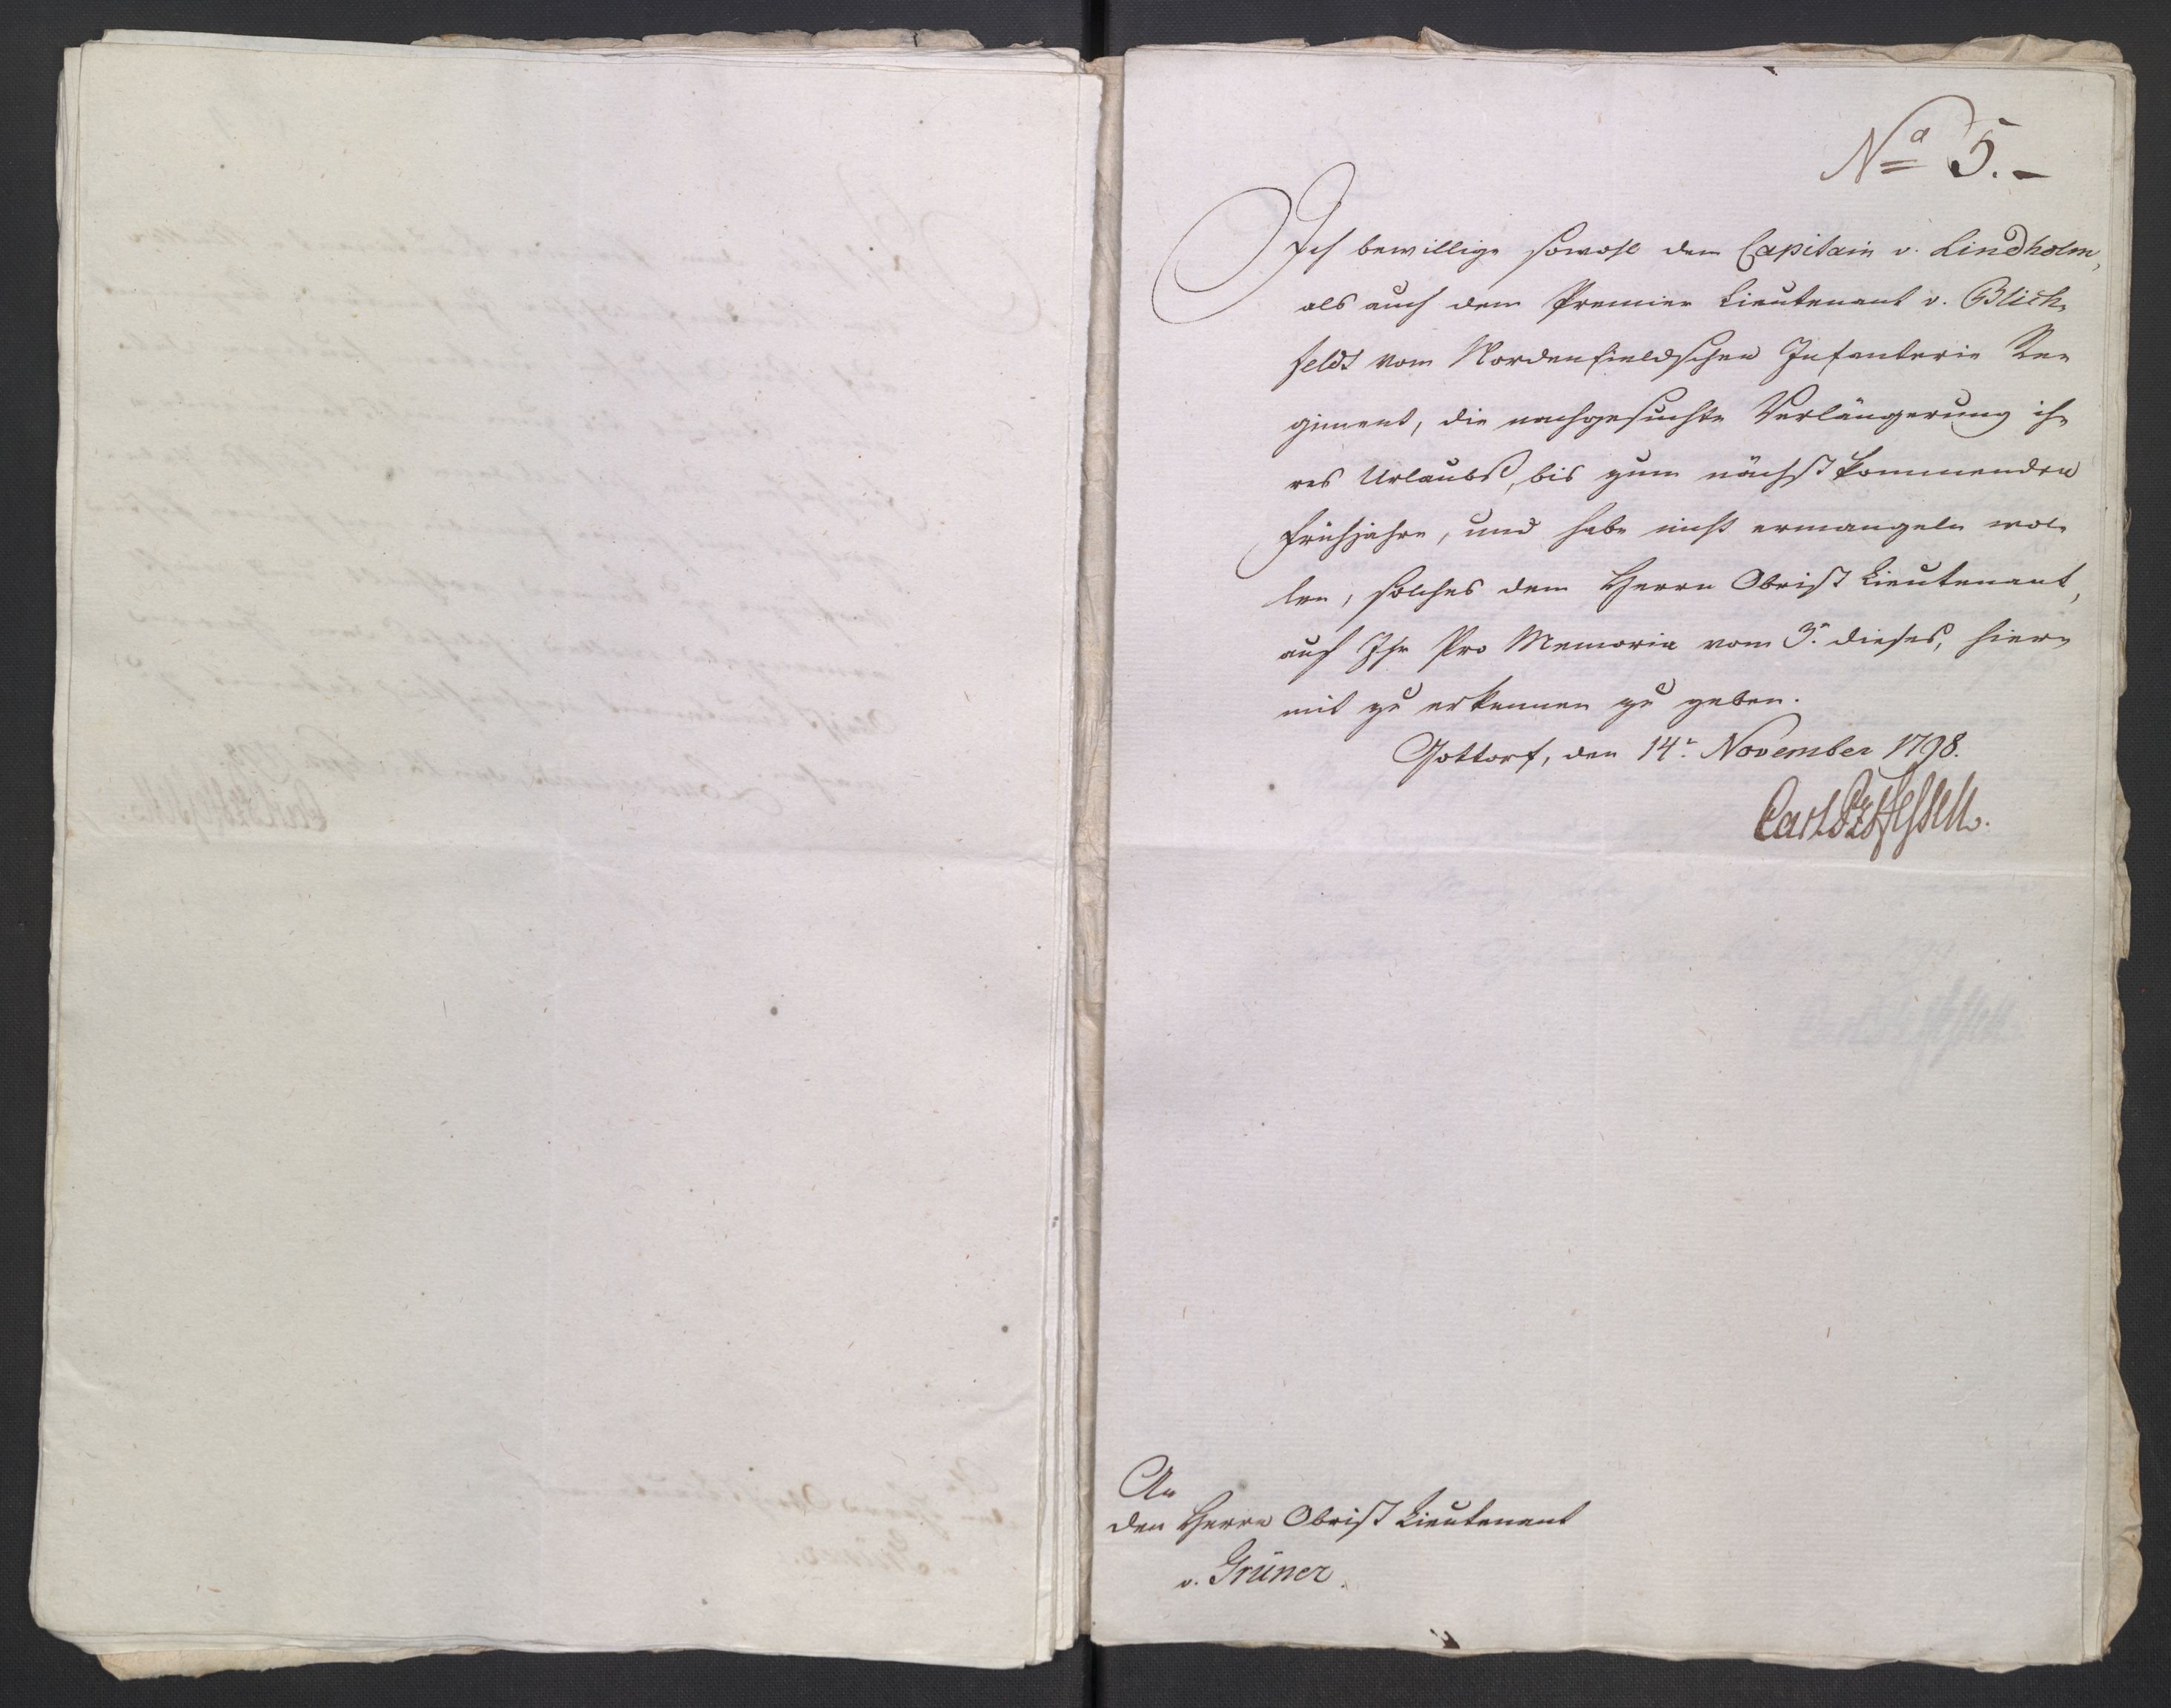 No 5.-
Ich bewillige sowohl dem Capitain v. Lindholm,
als auch dem Premier Lieutenant v. Blich-
feldt vom Nordenfieldschen Infanterie Re-
giment, die nachgesuchte Verlängerung ih-
res Urlaubs, bis zum nächstkommenden
Frühjahre, und habe nicht ermangeln wol-
len, solches dem Herrn Obrist Lieutenant,
auf Ihr Pro Memoria vom 3t. dieses, hier-
mit zu erkennen zu geben.
Gottorf, den 14t. November 1798.
Carl PzHessen.
An
den Herrn Obrist Lieutenant
v. Grüner.